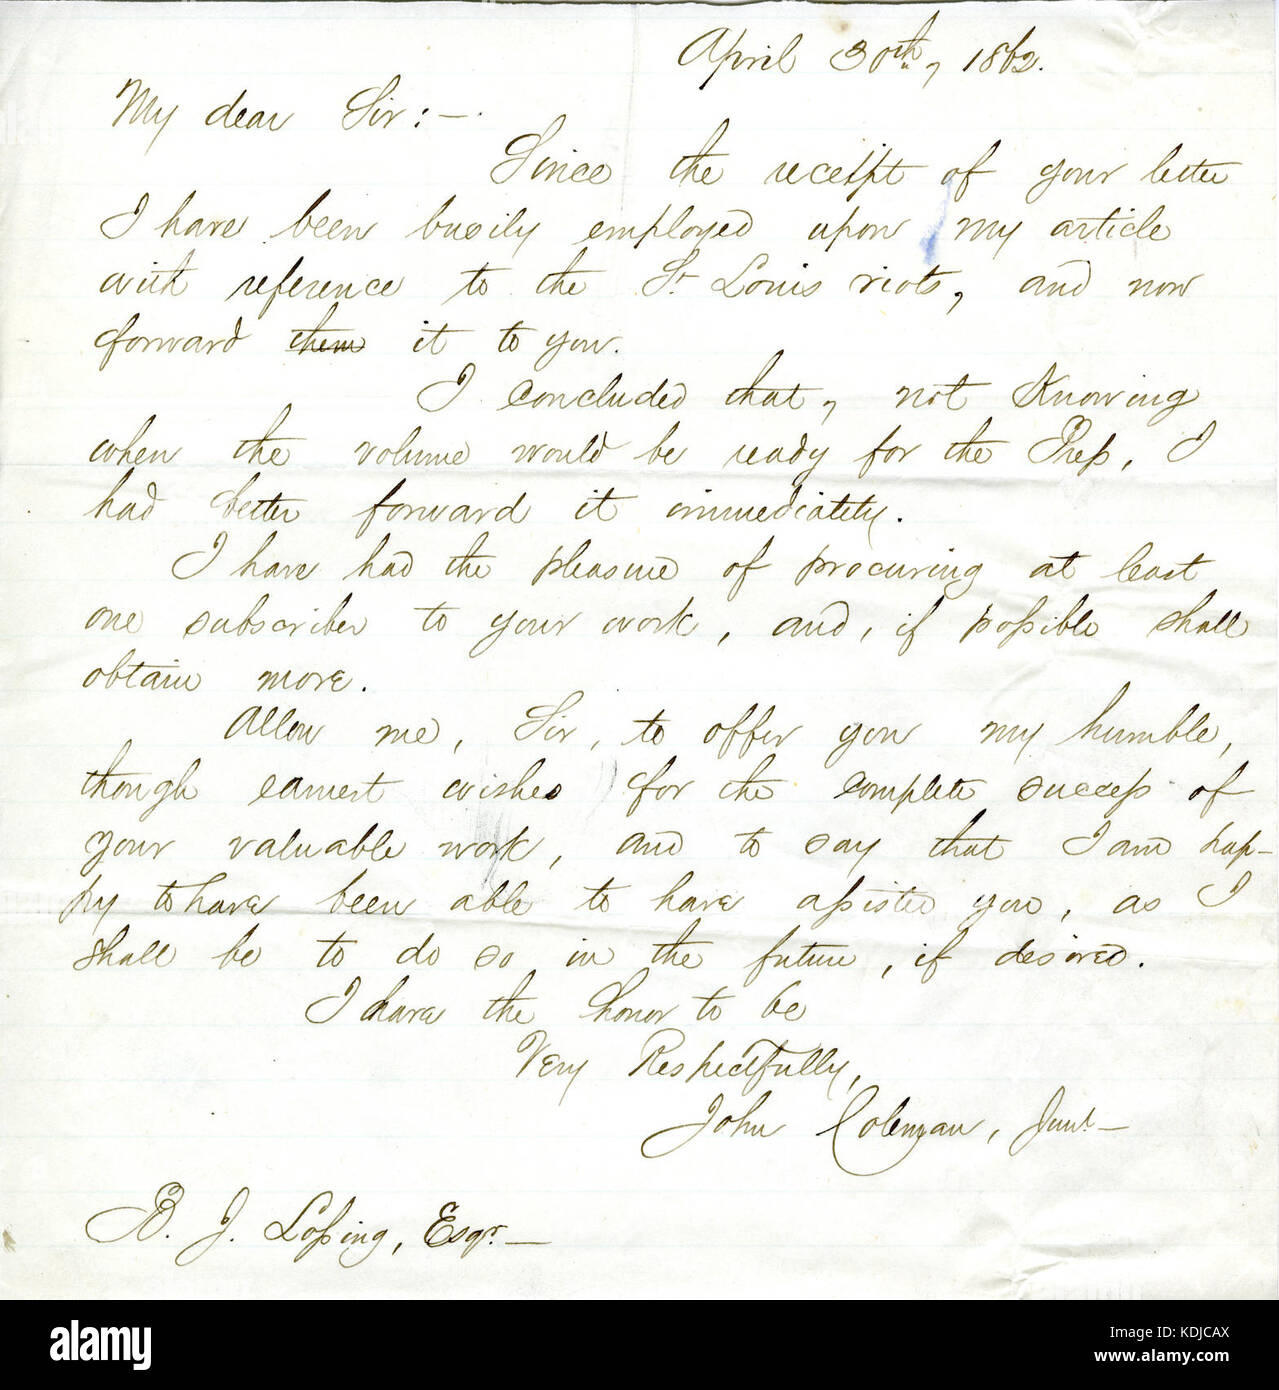 April 30th, 1862.
My dear Sir:—
Since the receipt of your letter
I have been busily employed upon my article
with reference to the St Louis riots, and now
forward them it to you.
I concluded that, not Knowing
when the volume would be ready for the Press, I
had better forward it immediately.
I have had the pleasure of procuring at least
one subscriber to your work, and, if possible shall
obtain more.
Allow me, Sir, to offer you my humble,
though earnest wishes for the complete success of
your valuable work, and to say that I am hap-
py to have been able to have assisted you, as I
shall be to do so in the future, if desired.
I have the honor to be
Very Respectfully,
John Coleman, Junr—
B. J. Lossing, Esqr.—
alamy
Image ID: KDJCAX
www.alamy.com